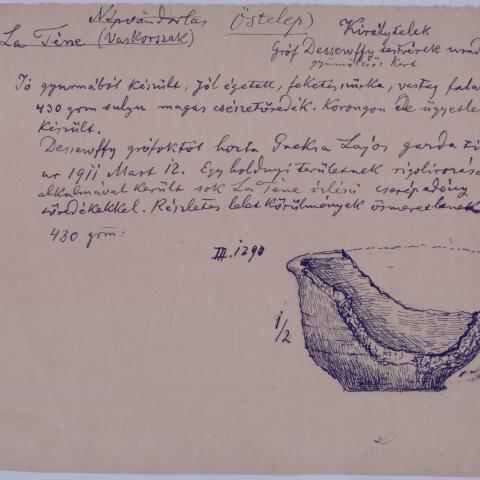 Népvándorlás Östelep) Királytelek
La Téne (Vaskorszak) Gróf Dessewffy testvérek urad
gyümölcsös kert
Jó gyurmából készült, jól égetett, feketésszürke, vastag falu
430 grm sulyu magas csészetöredék. Korongon de ügyetle
készült.
Dessewffy grófoktól hozta Greksa Lajos gazda ti
ur 1911 Mart 12. Egy holdnyi területnek rigolirozása
alkalmával került sok La Téne izlésü cserépedény
töredékekkel. Részletes leletkörülmények ösmeretlenek
430 grm:
III. 1290
1/2